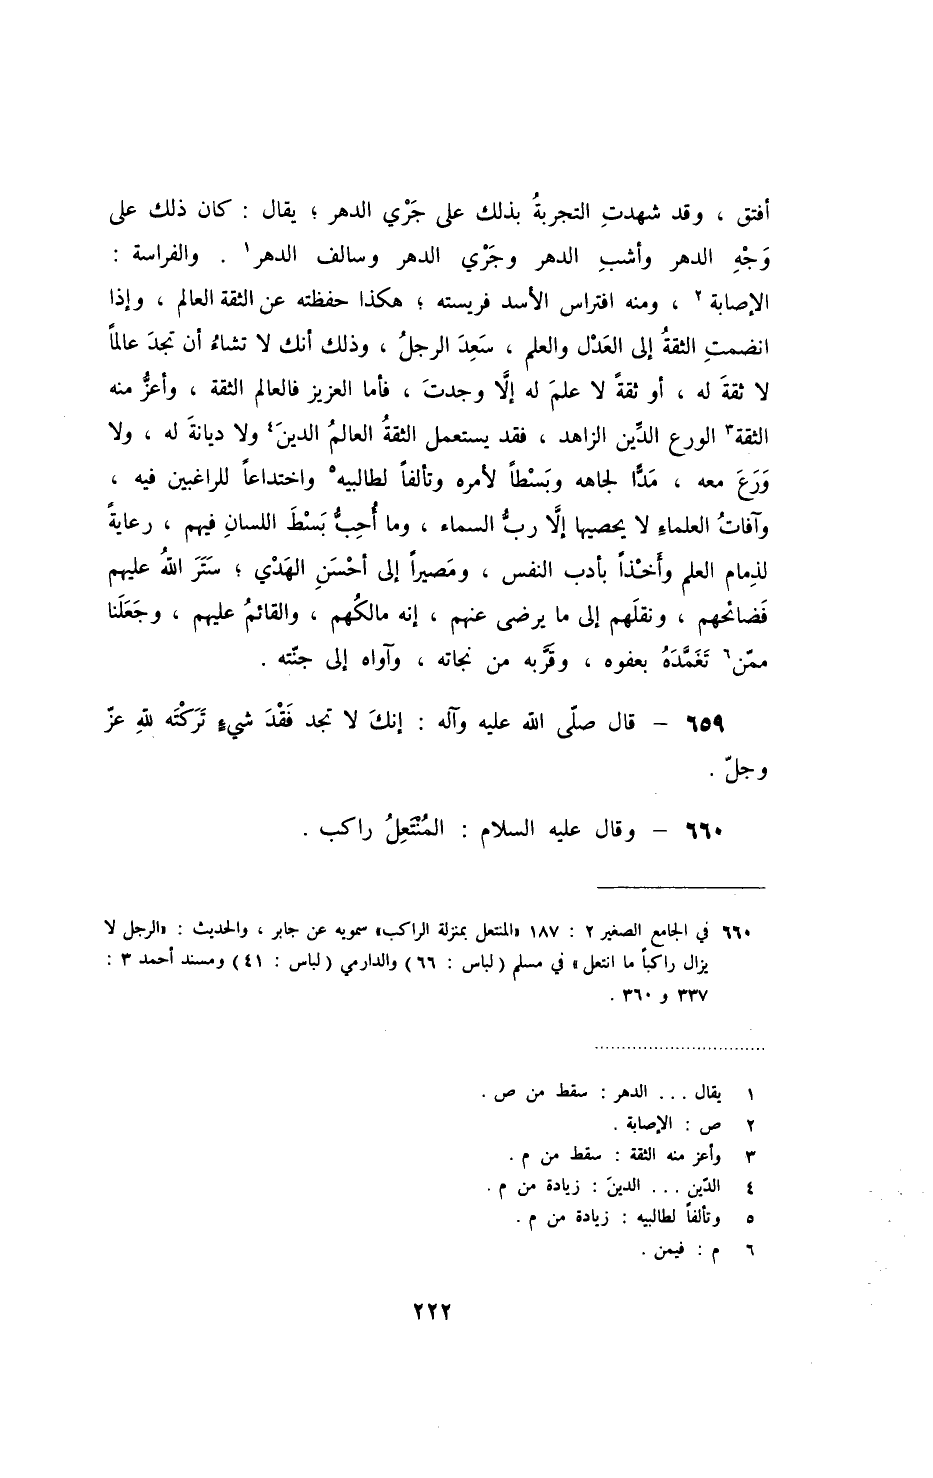 أفتق ، وقد شهدتِ التجربةُ بذلك على جَرْي الدهر ؛ يقال : كان ذلك على
وَجْهِ الدهر وأشبِ الدهر وجَرْي الدهر وسالف الدهر١ . والفراسة :
الإصابة٢ ، ومنه افتراس الأسد فريسته ؛ هكذا حفظته عن الثقة العالم ، وإذا
انضمتِ الثقةُ إلى العَدْل والعلم ، سَعِدَ الرجلُ ، وذلك أنك لا تشاءُ أن تجدَ عالماً
لا ثقةَ له ، أو ثقةً لا علمَ له إلَّا وجدتَ ، فأما العزيز فالعالم الثقة ، وأعزُّ منه
الثقة٣ الورع الدِّين الزاهد ، فقد يستعمل الثقةُ العالمُ الدينَ٤ ولا ديانةَ له ، ولا
وَرَعَ معه ، مَدًّا لجاهه وبَسْطاً لأمره وتألفاً لطالبيه٥ واختداعاً للراغبين فيه ،
وآفاتُ العلماءِ لا يحصيها إلَّا ربُّ السماء ، وما أُحِبُّ بَسْطَ اللسانِ فيهم ، رعايةً
لذِمام العلم وأَخْذاً بأدب النفس ، ومَصيراً إلى أحْسَنِ الهَدْي ؛ سَتَرَ اللهُ عليهم
فَضائحهم ، ونقلَهم إلى ما يرضى عنهم ، إنه مالكُهم ، والقائمُ عليهم ، وجَعَلَنا
ممّن٦ تَغَمَّدَهُ بعفوه ، وقَرَّبه من نجاته ، وآواه إلى جنّته .
٦٥٩ – قال صلّى الله عليه وآله : إنكَ لا تجد فَقْدَ شيءٍ تَرَكْتَه للهِ عزّ
وجلّ .
٦٦٠ – وقال عليه السلام : المُنْتَعِلُ راكب .
٦٦٠ في الجامع الصغير ٢ : ١٨٧ «المنتعل بمنزلة الراكب» سمويه عن جابر ، والحديث : «الرجل لا
يزال راكباً ما انتعل» في مسلم (لباس : ٦٦) والدارمي (لباس : ٤١) ومسند أحمد ٣ :
٣٣٧ و ٣٦٠ .
١ يقال ... الدهر : سقط من ص .
٢ ص : الإصابة .
٣ وأعز منه الثقة : سقط من م .
٤ الدّين ... الدينَ : زيادة من م .
٥ وتألفاً لطالبيه : زيادة من م .
٦ م : فيمن .
٢٢٢